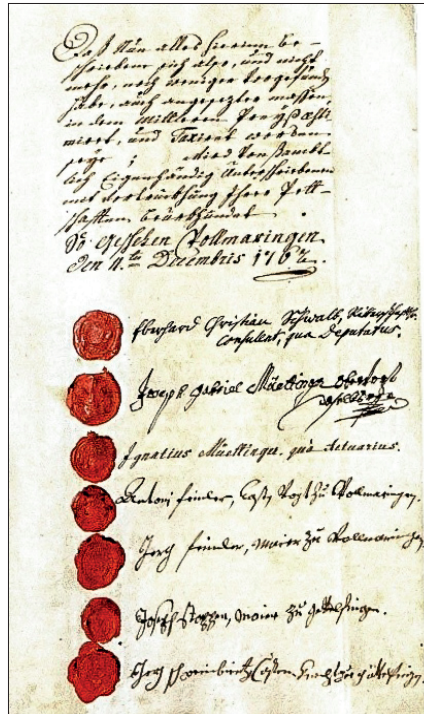 Daß Nun alles hierinn be-
schriebene sich also, und nicht
mehr, noch weniger vorgefunden
habe, auch angesezter massen,
in dem mittleren Preyß æsti-
mirt, und Taxirt worden
seye; wird von sambt-
lich Eigenhändig Unterschriebenen
mit vordruckhung Ihrer Pett-
schafften beurkhundet.
So geschehen Vollmaringen
den 11.ten Decembris 1762.
Eberhard Christian Schwalb,
Consulent, qua Deputatus.
Joseph Gabriel Müettinger
Ignatius Müettinger. quà Actuarius.
Antoni finder, Vogt zu Vollmaringen.
Jerg finder, Maier zu Vollmaringen
Joseph, Maier zu Göttelfingen.
Jerg